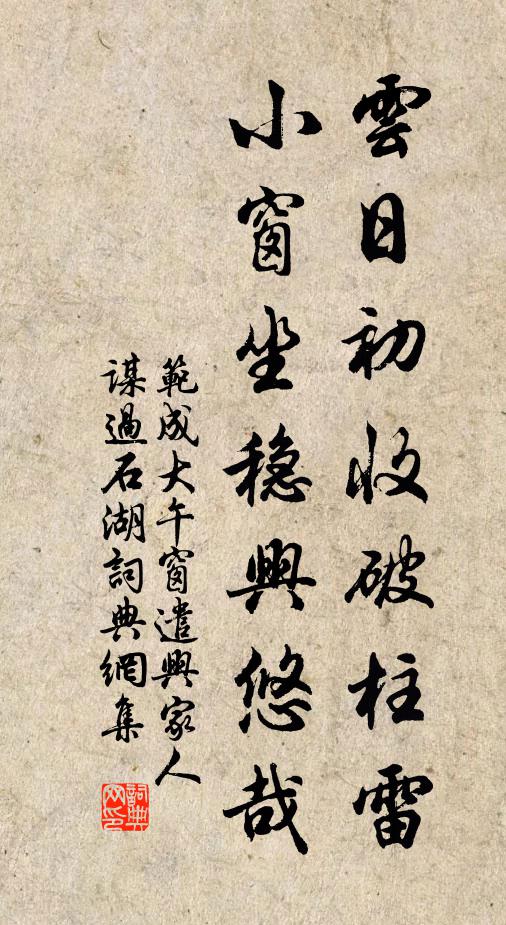 雲日初收破柱雷
小窗坐穩興悠哉
範成大午窗遣興家人
謀過石湖詞典網集
詞典網印